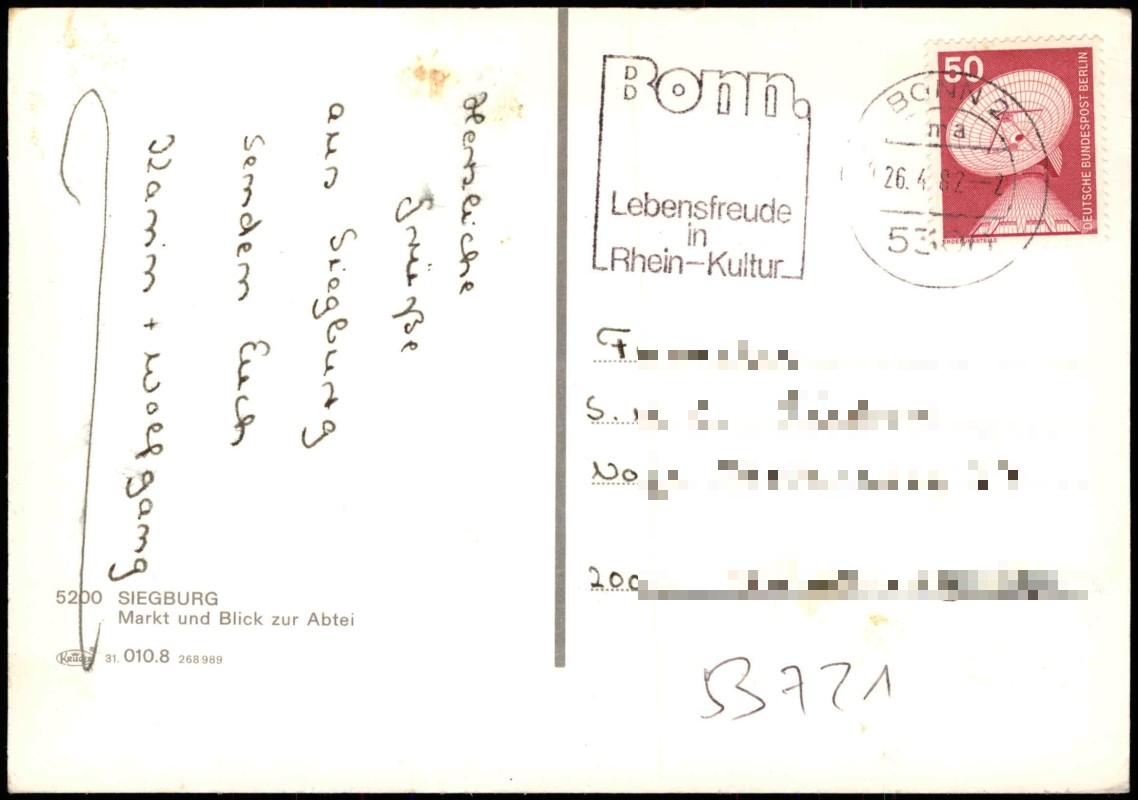 Herzliche
Grüße
aus Siegburg
senden Euch
+ Wolfgang
5200 SIEGBURG
Markt und Blick zur Abtei
Krüger 31. 010.8 268989
Bonn.
Lebensfreude
in
Rhein-Kultur
50
DEUTSCHE BUNDESPOST BERLIN
ERDEFUNKSTELLE
BONN 2
ma
26.4.82
53